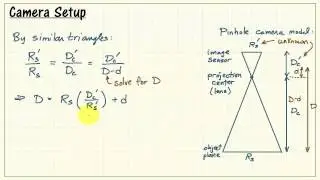 Camera Setup
By similar triangles:
Rs'/Rs = Dc'/Dc = Dc'/(D-d)
solve for D
⇒ D = Rs (Dc'/Rs') + d
Pinhole camera model:
Rs'
unknown
image sensor
Dc'
projection center (lens)
d
D-d
Dc
D
object plane
Rs